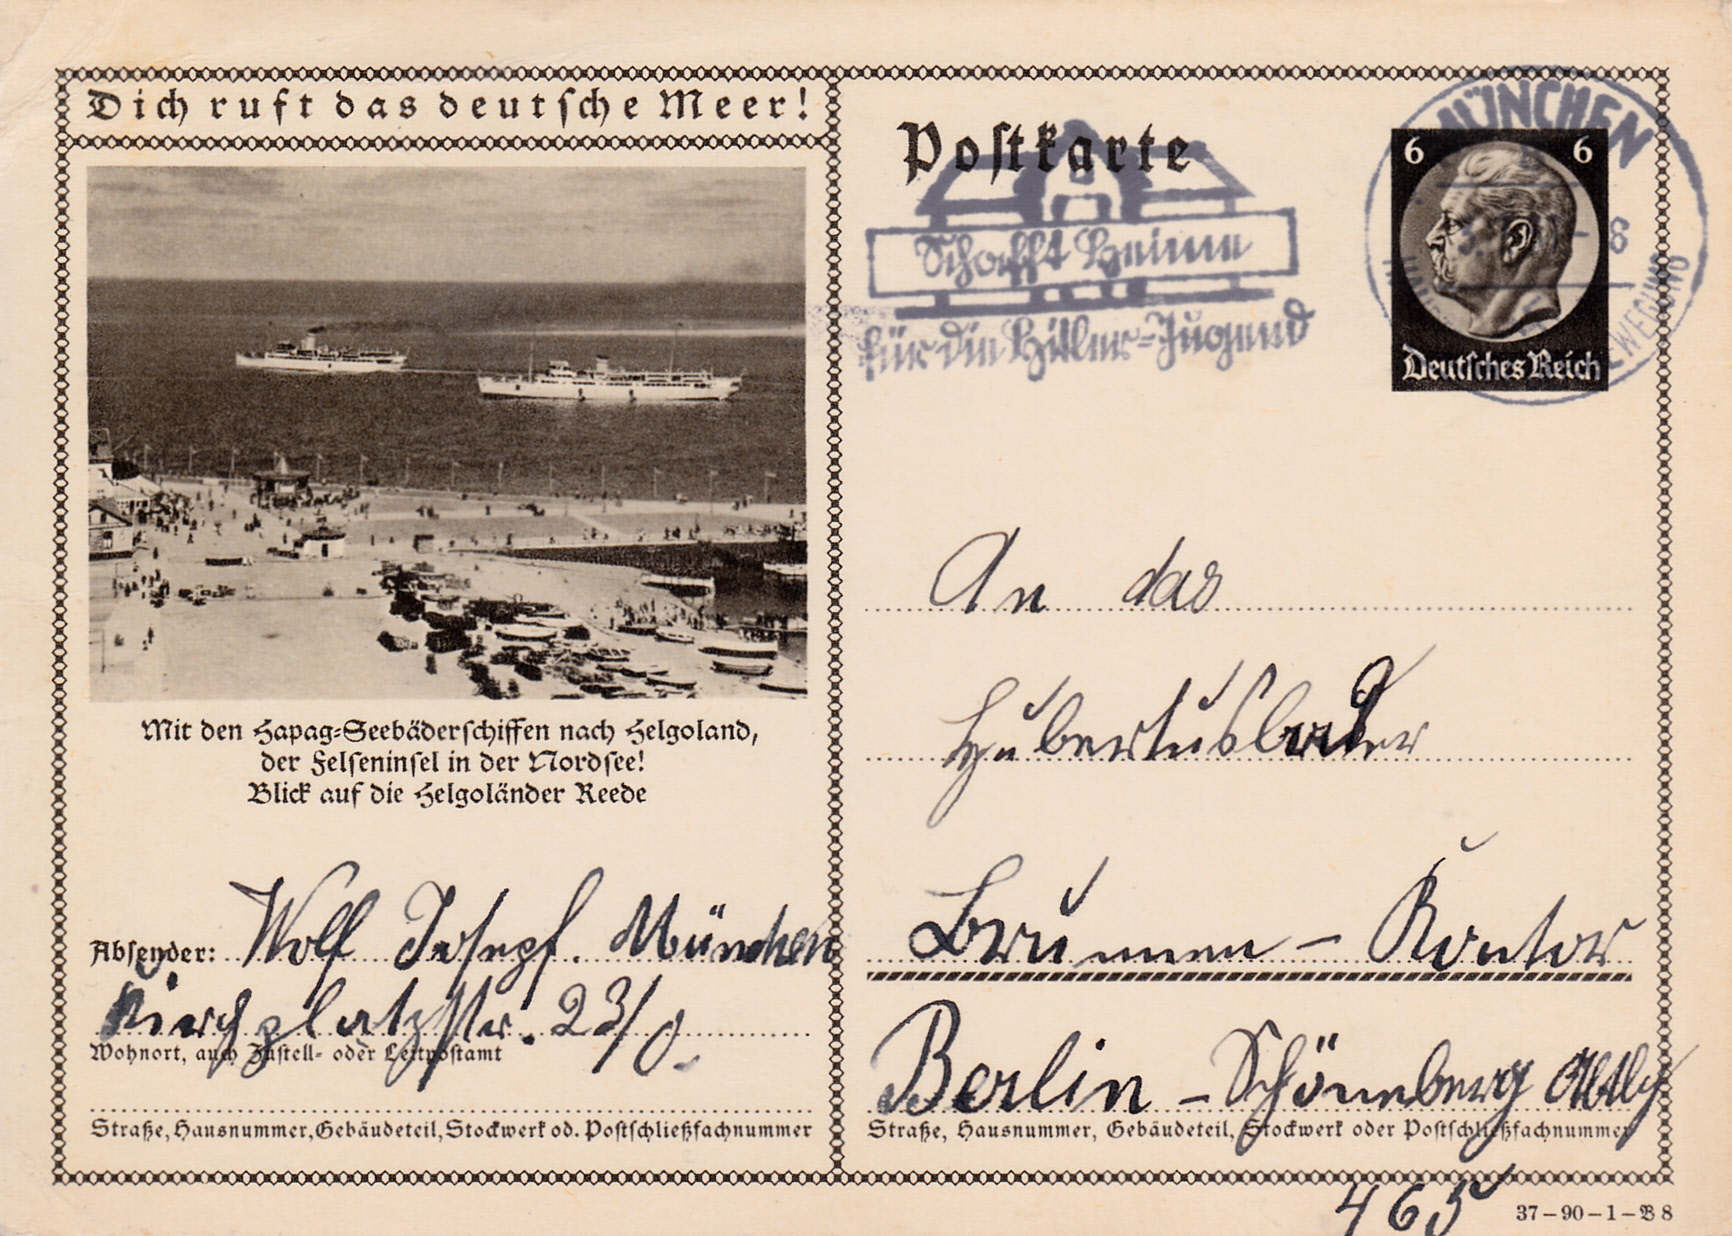 Dich ruft das deutsche Meer!
Mit den Hapag=Seebäderschiffen nach Helgoland,
der Felseninsel in der Nordsee!
Blick auf die Helgoländer Reede
Absender: Wolf Josepf. München
Kirchplatzstr. 23/0.
Wohnort, auch Zustell- oder Leitpostamt
Straße, Hausnummer, Gebäudeteil, Stockwerk od. Postschließfachnummer
Postkarte
Schafft Heime
für die Hitler=Jugend
MÜNCHEN
6 6
Deutsches Reich
An das
Hubertusbader
Brunnen – Kontor
Berlin – Schöneberg Abtlg
Straße, Hausnummer, Gebäudeteil, Stockwerk oder Postschließfachnummer
465
37–90–1–B 8